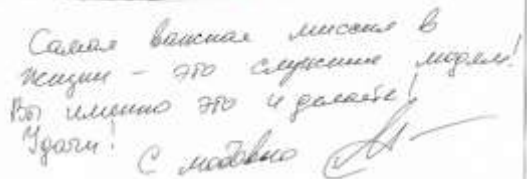 Самая важная миссия в
жизни – это служение людям!
Вы именно это и делаете!
Удачи!
С любовью